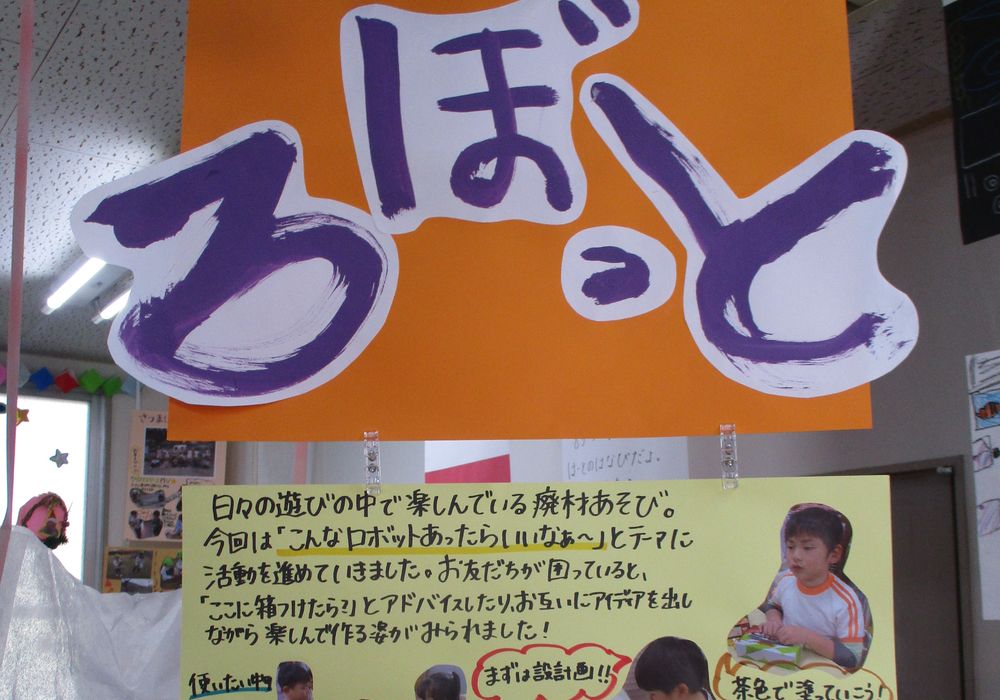 ろぼっと
日々の遊びの中で楽しんでいる廃材あそび。
今回は「こんなロボットあったらいいなぁ～」とテーマに
活動を進めていきました。お友だちが困っていると、
「ここに箱つけたら？」とアドバイスしたり、お互いにアイディアを出し
ながら楽しんで作る姿がみられました！
まずは設計画!!
茶色で塗っていこう！
使いたい物
はーとのはなびだよ。
さつま